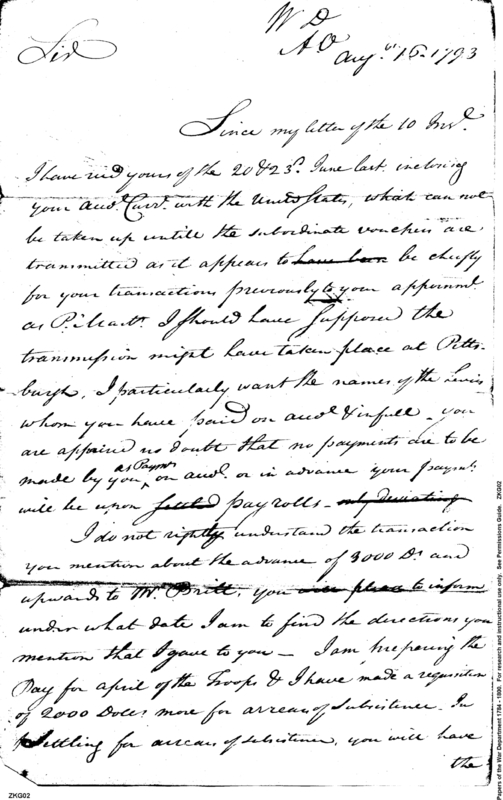 W D
A O
Augt 16. 1793
Sir
Since my letter of the 10 Inst.
I have recd yours of the 20 & 23d. June last inclosing
your accot. Currt. with the United States, which can not
be taken up untill the subordinate vouchers are
transmitted as it appears to have been be cheifly
for your transactions previously to your appointmt.
as P. Mastr. I should have supposed the
transmission might have taken place at Pitts-
burgh. I particularly want the names of the
whom you have paid on accot. & in full - you
are apprised no doubt that no payments are to be
made by you as Paymr on accot. or in advance your paymts.
will be upon settled payrolls - only deviating
I do not rightly understand the transaction
you mention about the advance of 3000 Ds and
upwards to Mr. Britt, you will please to inform
under what date I am to find the directions you
mention that I gave to you - I am preparing the
Pay for april of the Troops & I have made a requisition
of 2000 Dolls more for arrears of Subsistence. In
Settling for arrears of subsistence, you will have
the
ZKG02
Papers of the War Department 1784 - 1800. For research and instructional use only. See Permissions Guide. ZKG02